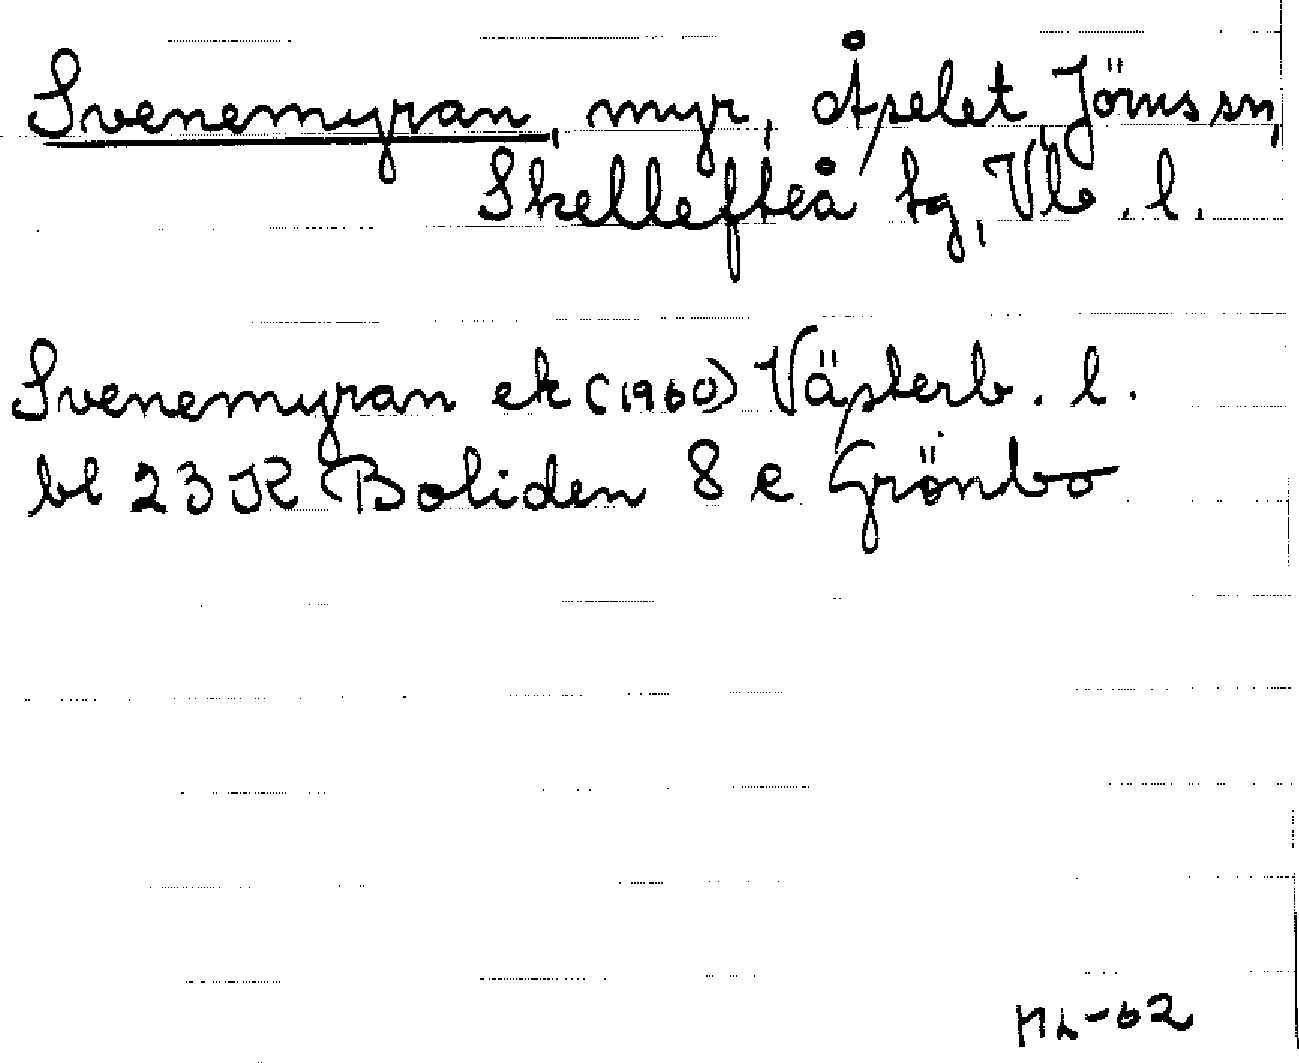 Svenemyran, myr, Åselet, Jörns sn,
Skellefteå tg, Vb. l.
Svenemyran ek (1960) Västerb. l.
bl 23 K Boliden 8 e Grönbo
ML-62